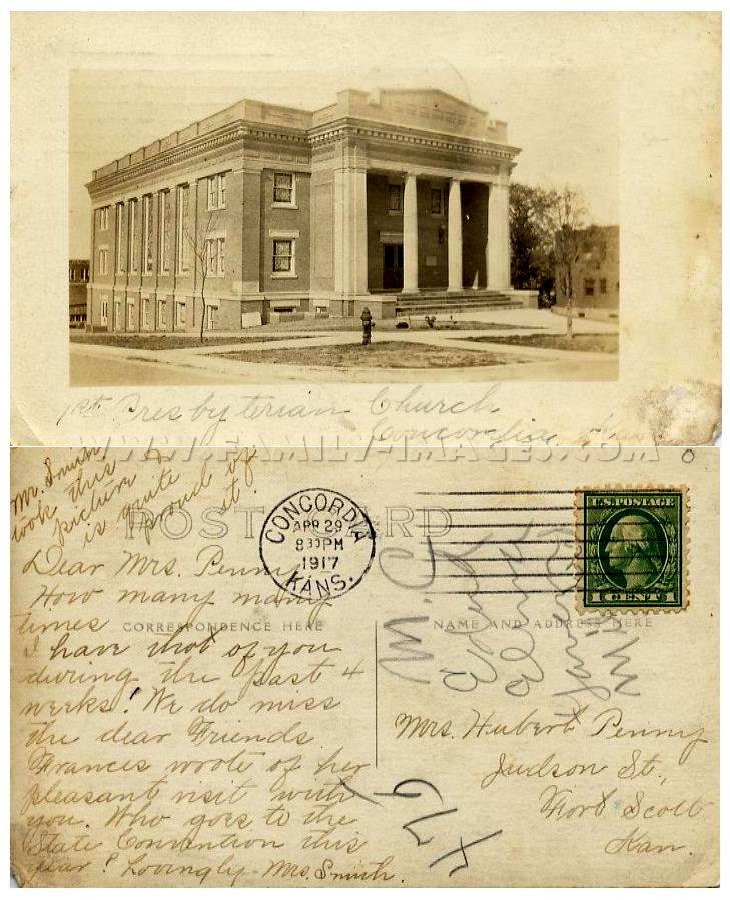 1st Presbyterian Church
Concordia,
WWW.FAMILY-IMAGES.COM
Mr. Smith
took this
picture &
is quite
proud of
it!
POST CARD
CONCORDIA
APR 29
8 30 PM
1917
KANS.
U.S. POSTAGE
1 CENT 1
Dear Mrs. Penny,
How many many
times
CORRESPONDENCE HERE
NAME AND ADDRESS HERE
I have thot of you
during the past 4
weeks! We do miss
the dear Friends
Frances wrote of her
pleasant visit with
you. Who goes to the
State Convention this
year? Lovingly - Mrs. Smith.
Mrs. Hubert Penny
Judson St.,
Fort Scott
Kan.